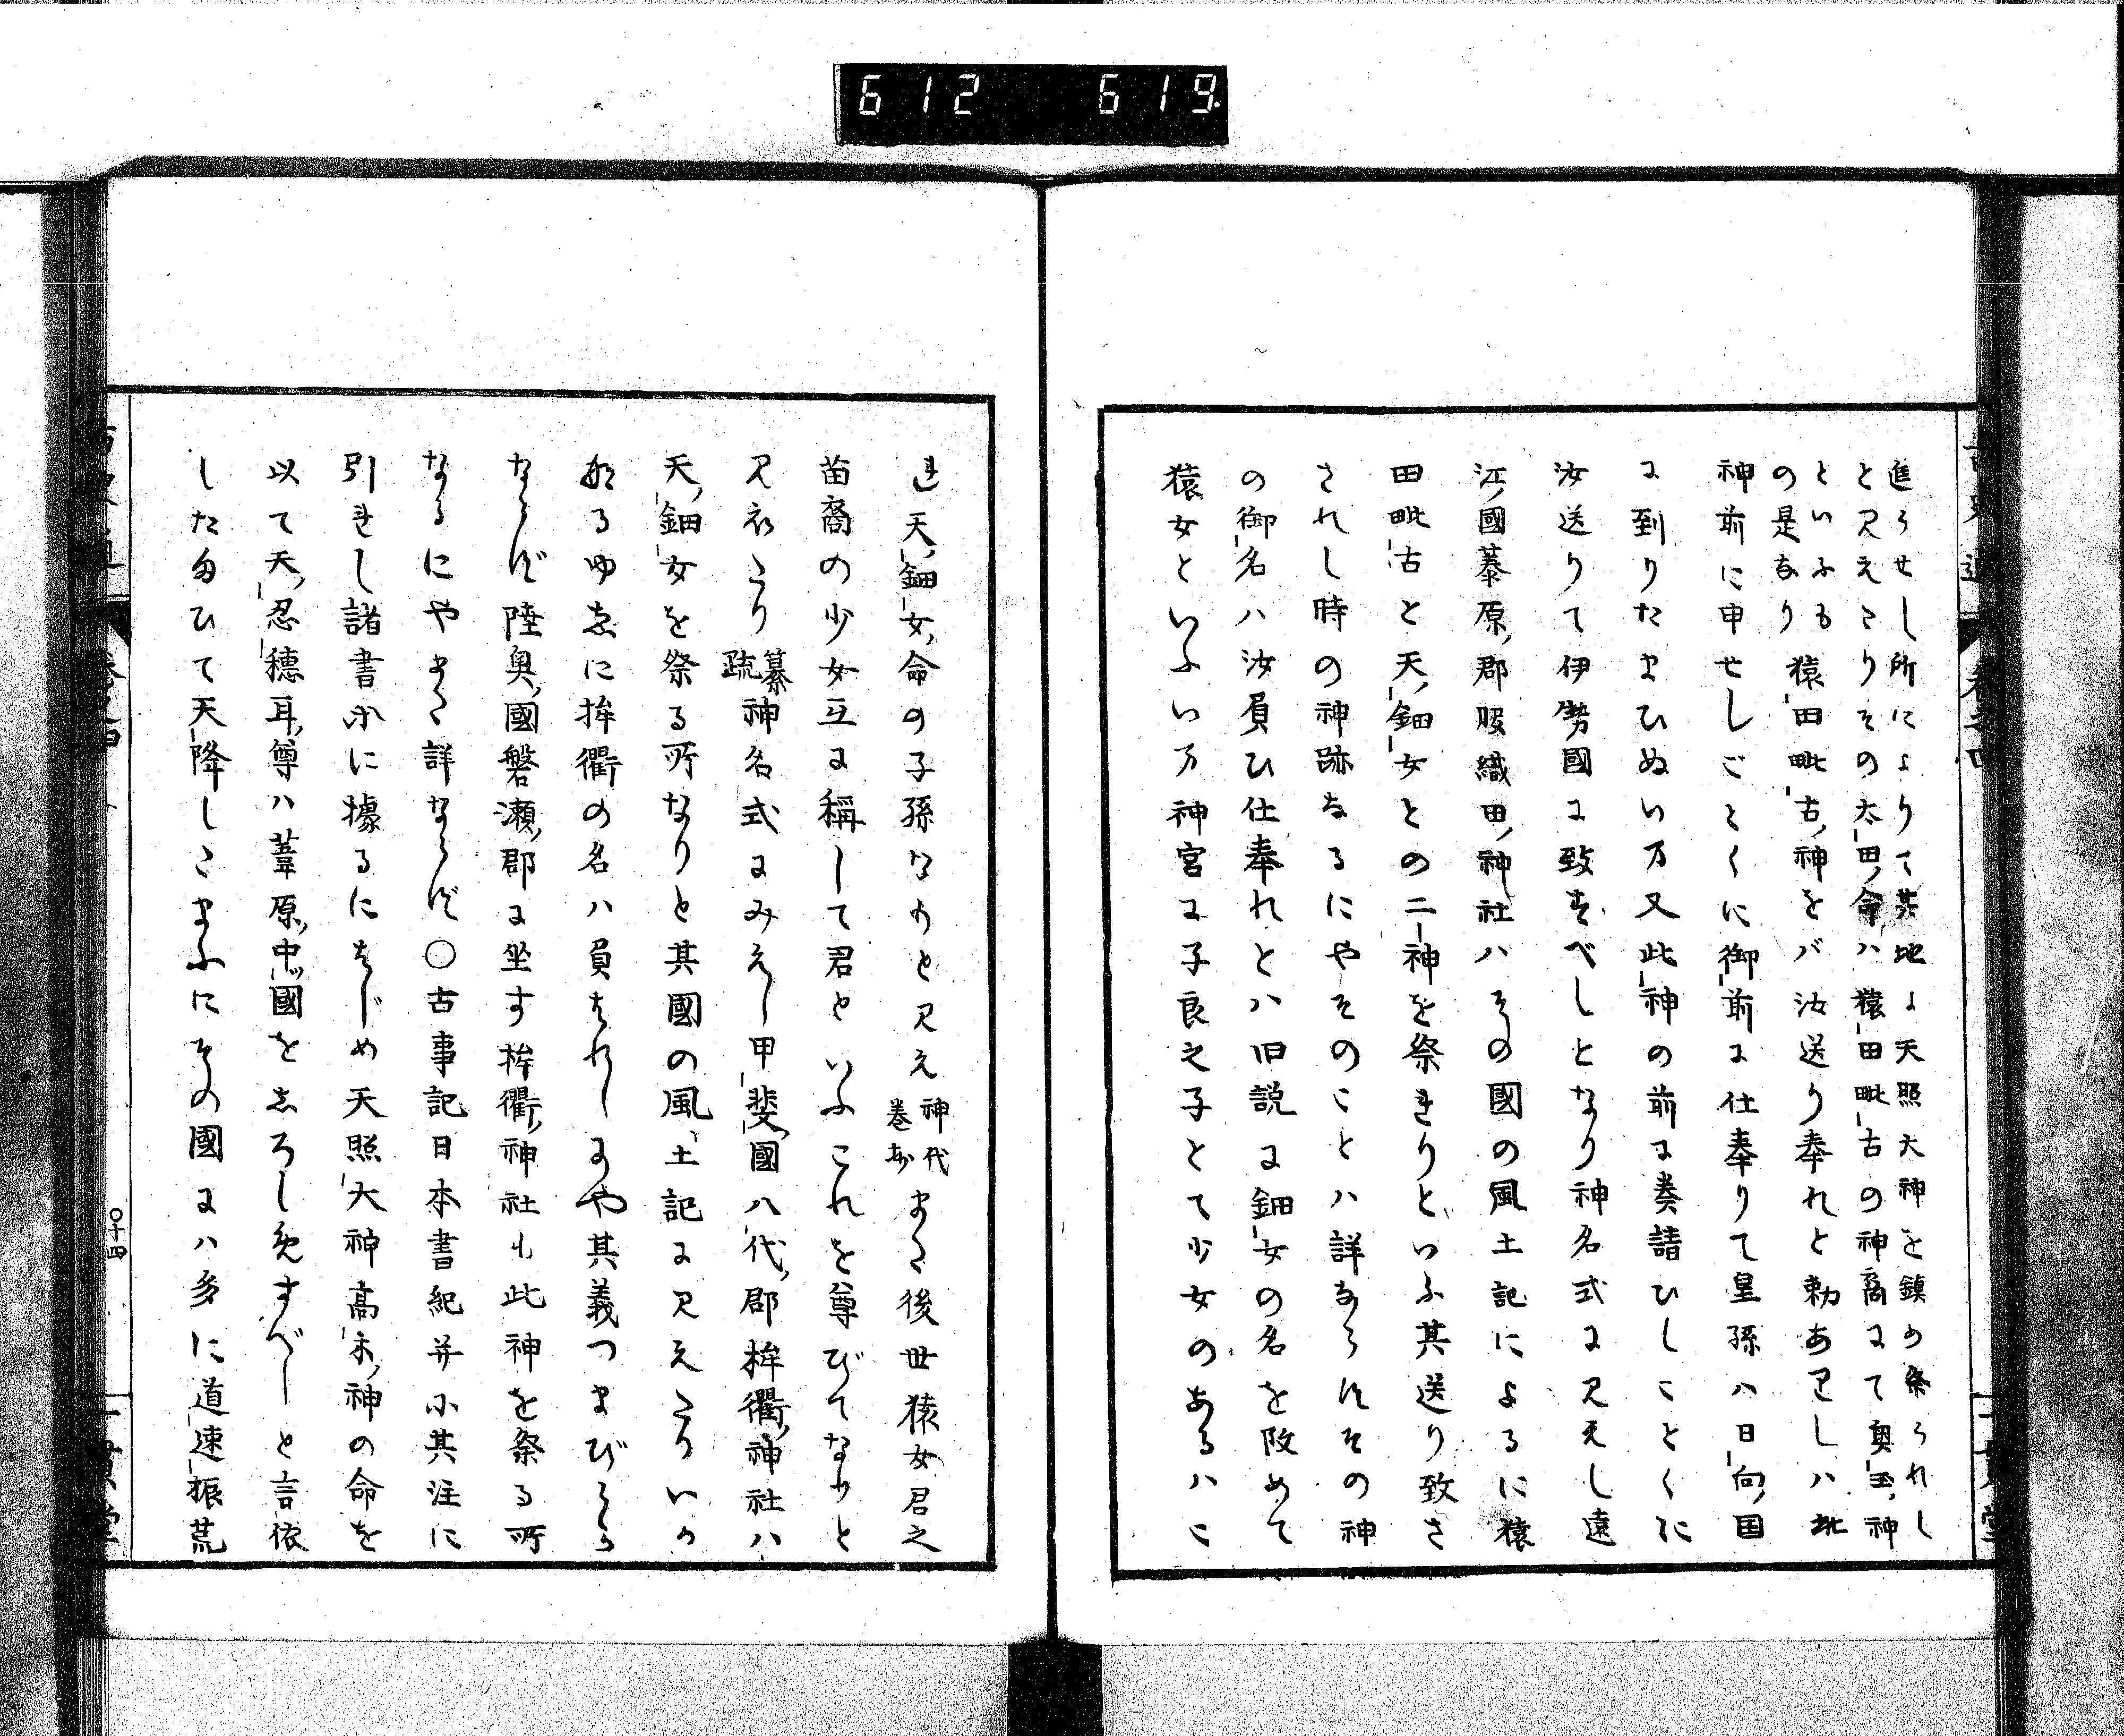 612 619
進らせし所によりて其地に天照大神を鎮め祭られし
と見えたりその太田命ハ猿田毗古の神裔にて奥玉神
といふも
の是なり猿田毗古神をバ汝送り奉れと勅ありしハ此
神前に申せしごとくに御前に仕奉りて皇孫ハ日向国
に到りたまひぬいハ又此神の前に奏請ひしことくに
汝送りて伊勢國に致すべしとなり神名式に見えし遠
江國蓁原郡服織田神社ハその國の風土記によるに猿
田毗古と天鈿女との二神を祭れりといふ其送り致さ
されし時の神跡なるにやそのことハ詳ならずその神
の御名ハ汝負ひ仕奉れとハ旧説に鈿女の名を改めて
猿女といふハ神宮に子良之子とて少女のあるハこ
れ天鈿女命の子孫なりと見え神代巻抄また後世猿女君之
苗裔の少女互に稱して君といふこれを尊びてなりと
見えたり纂疏神名式にみえし甲斐國八代郡桙衢神社ハ
天鈿女を祭る所なりと其國の風土記に見えたりいか
なるゆゑに桙衢の名ハ負はれしにや其義つまびらか
ならず陸奥國磐瀬郡に坐す桙衢神社も此神を祭る所
なるにやまた詳ならず○古事記日本書紀并に其注に
引れし諸書に據るにはじめ天照大神高木神の命を
以て天忍穗耳尊ハ葦原中國をしろしめすべしと言依
したまひて天降したまふにその國にハ多に道速振荒
卷之四
十四